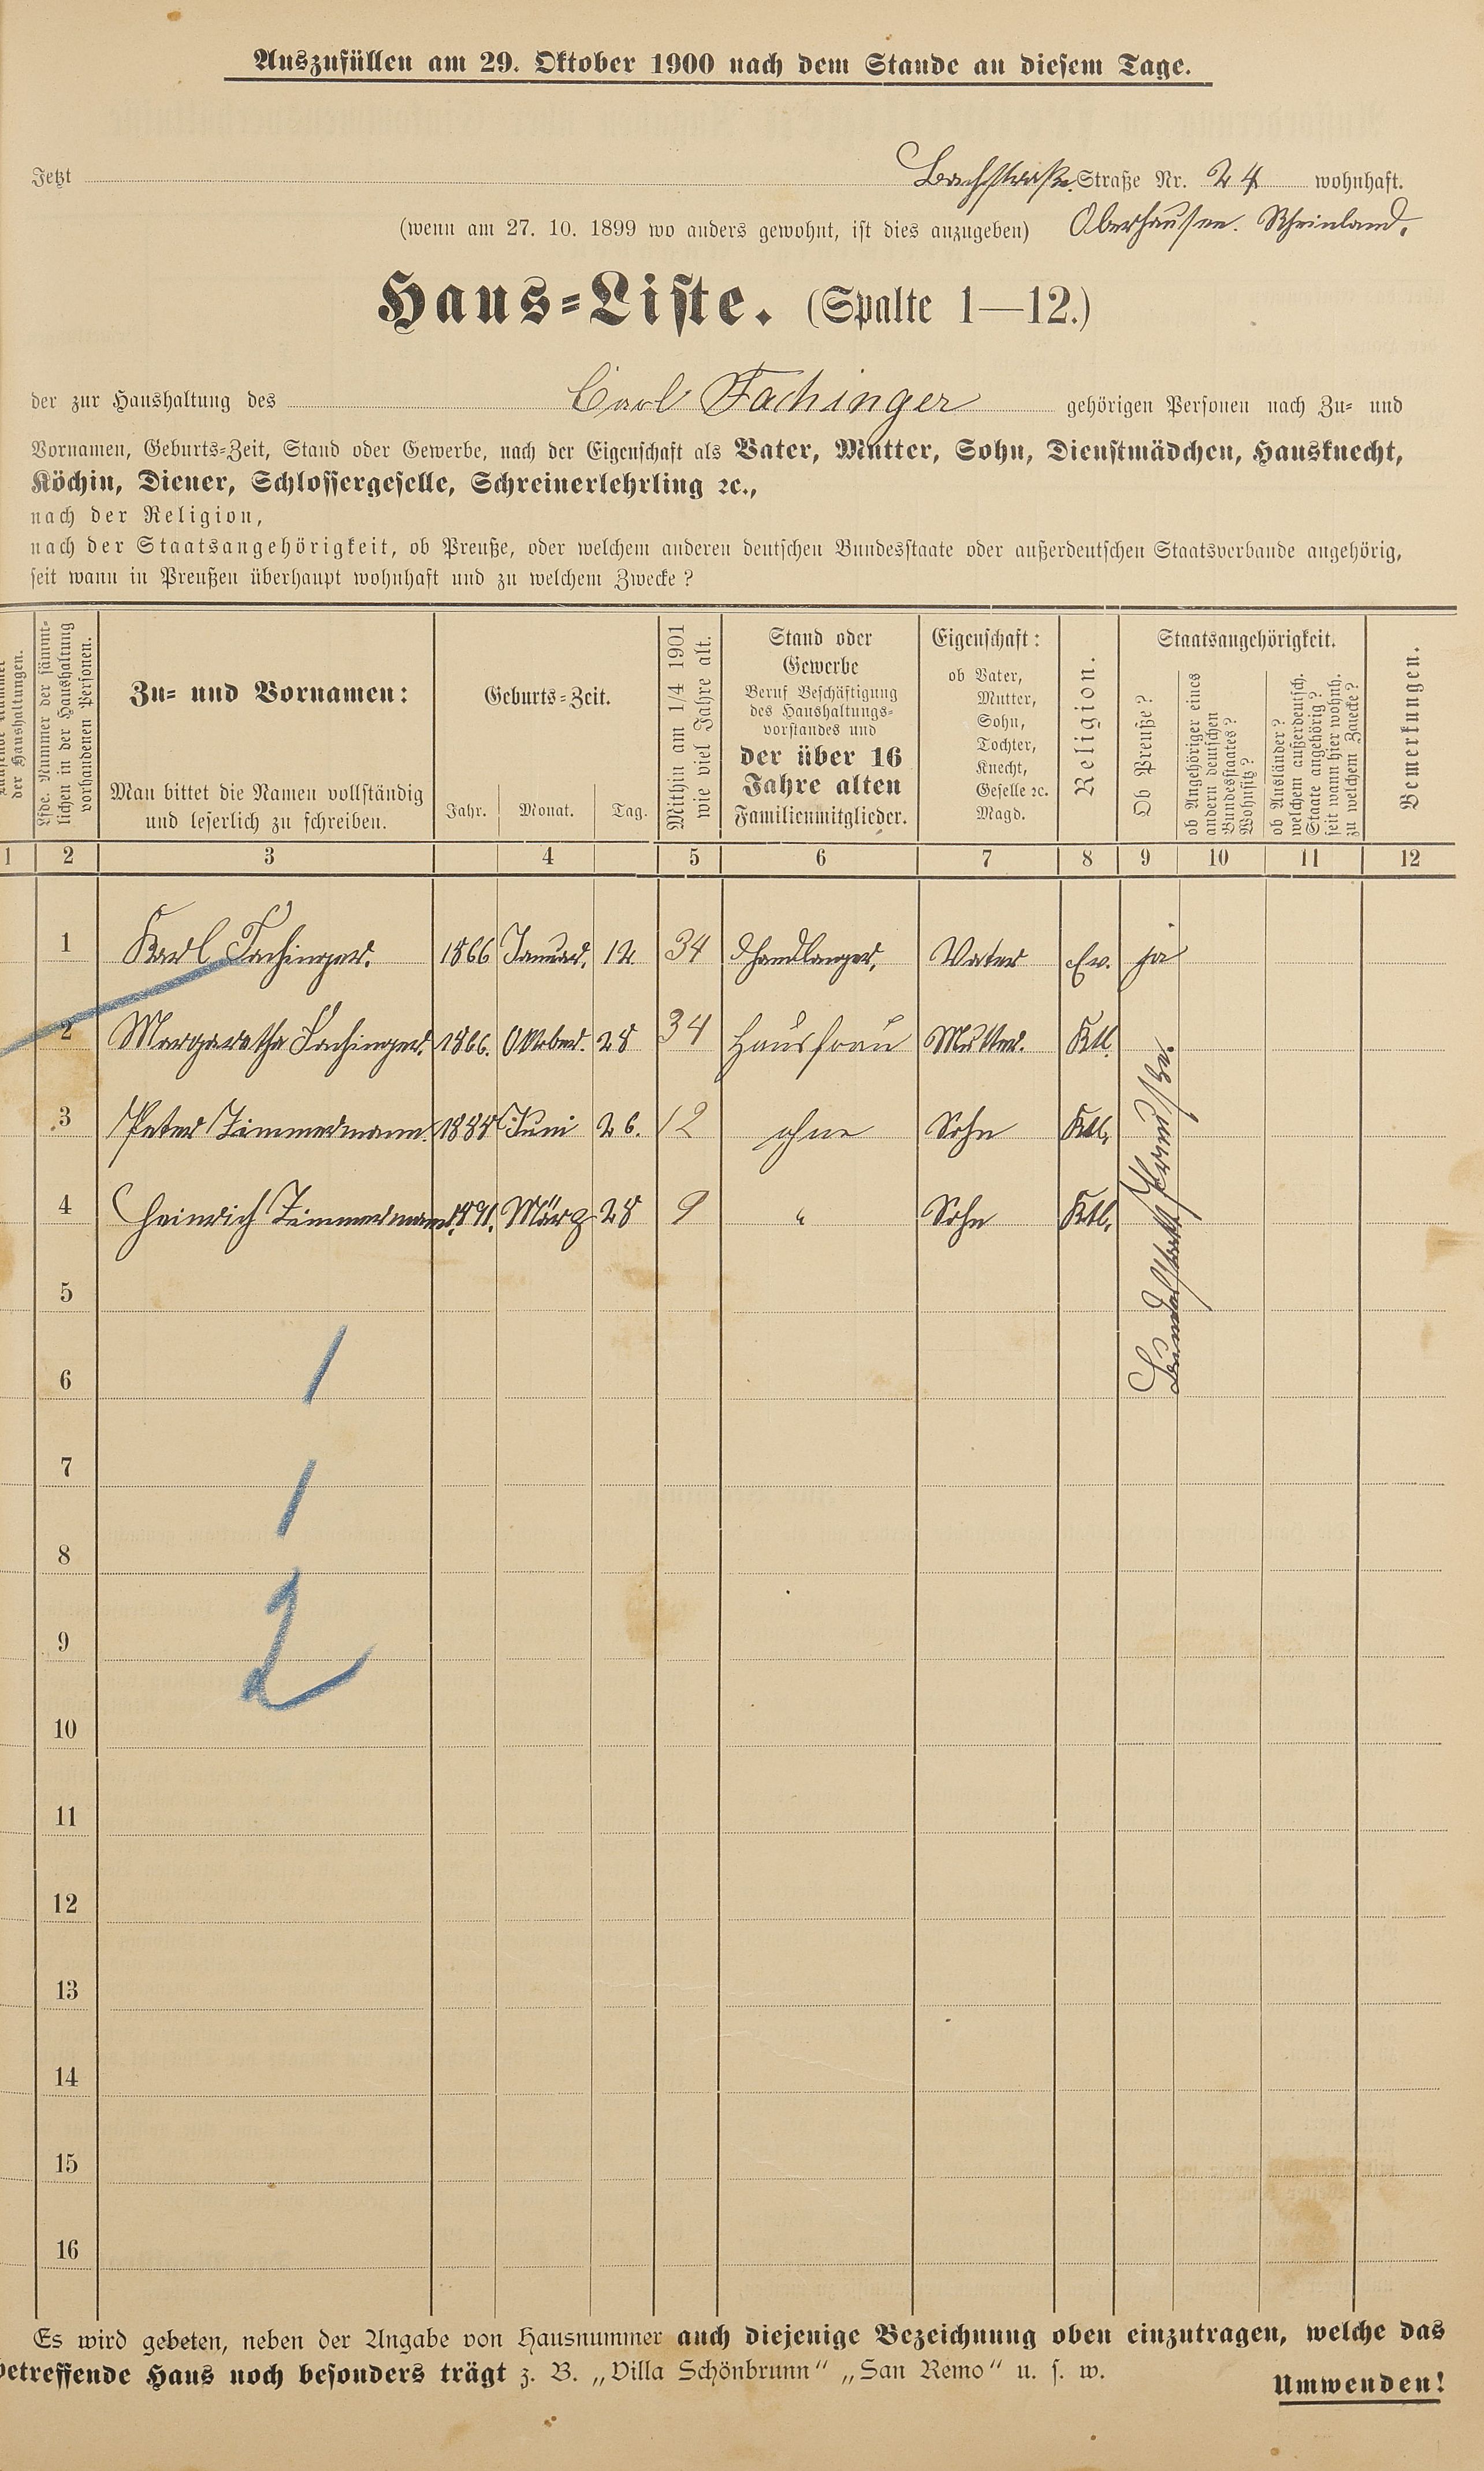 Auszufüllen am 29. Oktober 1900 nach dem Stande an diesem Tage.
Jetzt Bachstraße Straße Nr. 24 wohnhaft.
(wenn am 27. 10. 1899 wo anders gewohnt, ist dies anzugeben) Oberhausen. Rheinland.
Haus-Liste. (Spalte 1—12.)
der zur Haushaltung des Carl Fachinger gehörigen Personen nach Zu- und
Vornamen, Geburts-Zeit, Stand oder Gewerbe, nach der Eigenschaft als Vater, Mutter, Sohn, Dienstmädchen, Hausknecht,
Köchin, Diener, Schlossergeselle, Schreinerlehrling ꝛc.,
nach der Religion,
nach der Staatsangehörigkeit, ob Preuße, oder welchem anderen deutschen Bundesstaate oder außerdeutschen Staatsverbande angehörig,
seit wann in Preußen überhaupt wohnhaft und zu welchem Zwecke?
der Haushaltungen.
Lfde. Nummer der sämmt-
lichen in der Haushaltung
vorhandenen Personen.
Zu- und Vornamen:
Man bittet die Namen vollständig
und leserlich zu schreiben.
Geburts-Zeit.
Jahr. Monat. Tag.
Mithin am 1/4 1901
wie viel Jahre alt.
Stand oder
Gewerbe
Beruf Beschäftigung
des Haushaltungs-
vorstandes und
der über 16
Jahre alten
Familienmitglieder.
Eigenschaft:
ob Vater,
Mutter,
Sohn,
Tochter,
Knecht,
Geselle ꝛc.
Magd.
Religion.
Staatsangehörigkeit.
Ob Preuße?
ob Angehöriger eines
andern deutschen
Bundesstaates?
Wohnsitz?
ob Ausländer?
welchem außerdeutsch.
Staate angehörig?
seit wann hier wohnh.
zu welchem Zwecke?
Bemerkungen.
1 2 3 4 5 6 7 8 9 10 11 12
1 Karl Fachinger. 1866 Januar. 12. 34 Handlanger. Vater Ev. ja
2 Margaretha Fachinger. 1866. Oktober. 28 34 Hausfrau Mutter. Ktl.
3 Peter Zimmermann. 1888 Juni 26. 12 ohne Sohn Ktl.
4 Heinrich Zimmermann. 1891. März 28 9 " Sohn Ktl.
Bundesstaat Preußen.
5
6
7
8
9
10
11
12
13
14
15
16
1
1
2
Es wird gebeten, neben der Angabe von Hausnummer auch diejenige Bezeichnung oben einzutragen, welche das
betreffende Haus noch besonders trägt z. B. „Villa Schönbrunn“ „San Remo“ u. s. w.
Umwenden!